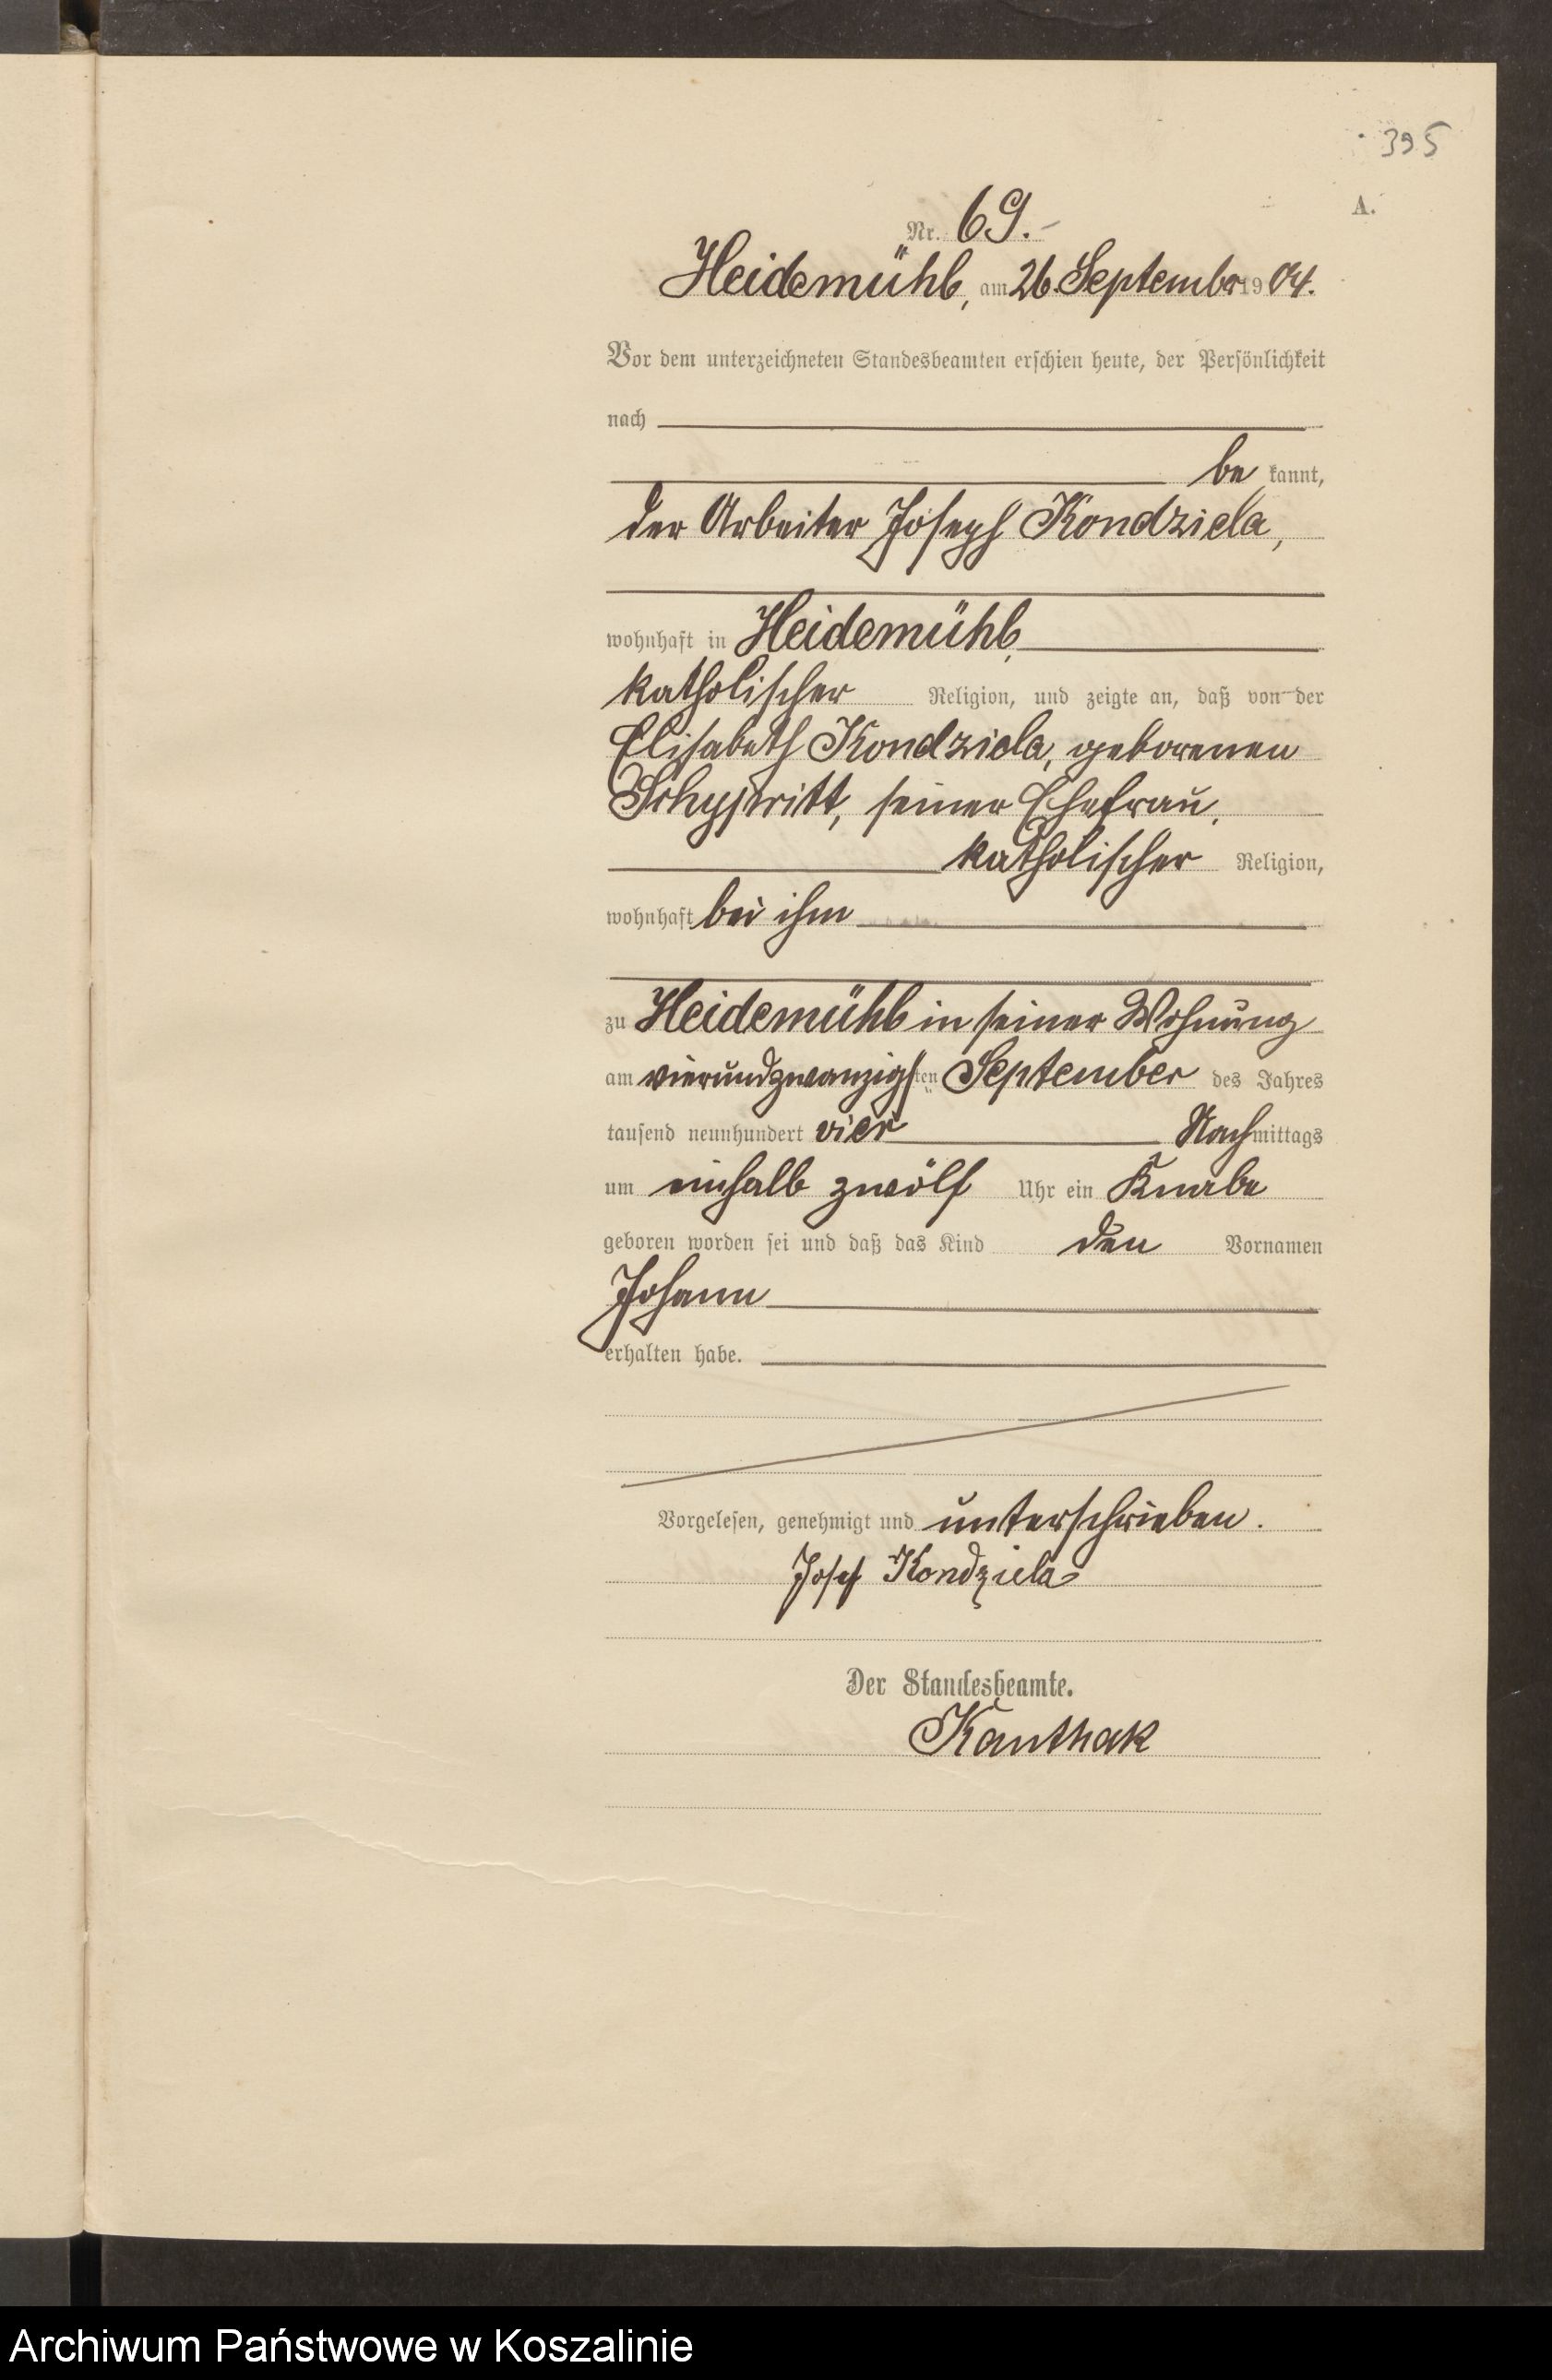 395
A.
Nr. 69.-
Heidemühl, am 26. September 1904.
Vor dem unterzeichneten Standesbeamten erschien heute, der Persönlichkeit
nach
be kannt,
der Arbeiter Joseph Kondziela,
wohnhaft in Heidemühl,
katholischer Religion, und zeigte an, daß von der
Elisabeth Kondziela, geborenen
seiner Ehefrau,
katholischer Religion,
wohnhaft bei ihm
zu Heidemühl in seiner Wohnung
am vierundzwanzigsten September des Jahres
tausend neunhundert vier Nachmittags
um einhalb zwölf Uhr ein Knabe
geboren worden sei und daß das Kind den Vornamen
Johann
erhalten habe.
Vorgelesen, genehmigt und unterschrieben.
Josef Kondziela
Der Standesbeamte.
Kanthak
Archiwum Państwowe w Koszalinie